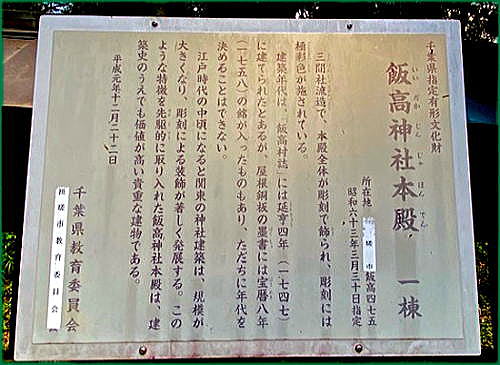 千葉県指定有形文化財
飯高神社本殿 一棟
いい だか じん じゃ ほん でん
所在地 匝瑳市飯高四七五
昭和六十三年三月三十日指定
三間社流造で、本殿全体が彫刻で飾られ、彫刻には
極彩色が施されている。
建築年代は、「飯高村誌」には延享四年（一七四七）
に建てられたとあるが、屋根銅板の墨書には宝暦八年
（一七五八）の銘が入ったものもあり、ただちに年代を
決めることはできない。
江戸時代の中頃になると関東の神社建築は、規模が
大きくなり、彫刻による装飾が著しく発展する。この
ような特徴を先駆的に取り入れた飯高神社本殿は、建
築史のうえでも価値が高い貴重な建物である。
平成元年十二月二十二日
千葉県教育委員会
匝瑳市教育委員会